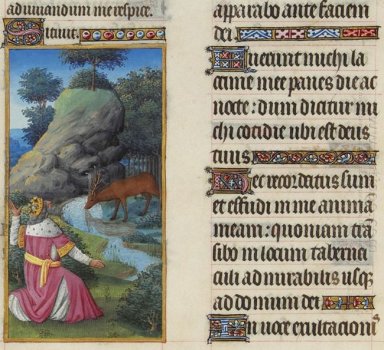 adiuuandum me respice.
Sitiuit.
apparabo ante faciem
dei
Fuerunt michi la
crime mee panes die ac
nocte: dum dicitur mi
chi cotidie ubi est deus
tuus
Hec recordatus sum
et effudi in me animã
meam: quoniam trã
sibo in locum taberna
culi admirabilis usq
ad domum dei
In uoce exultacionis